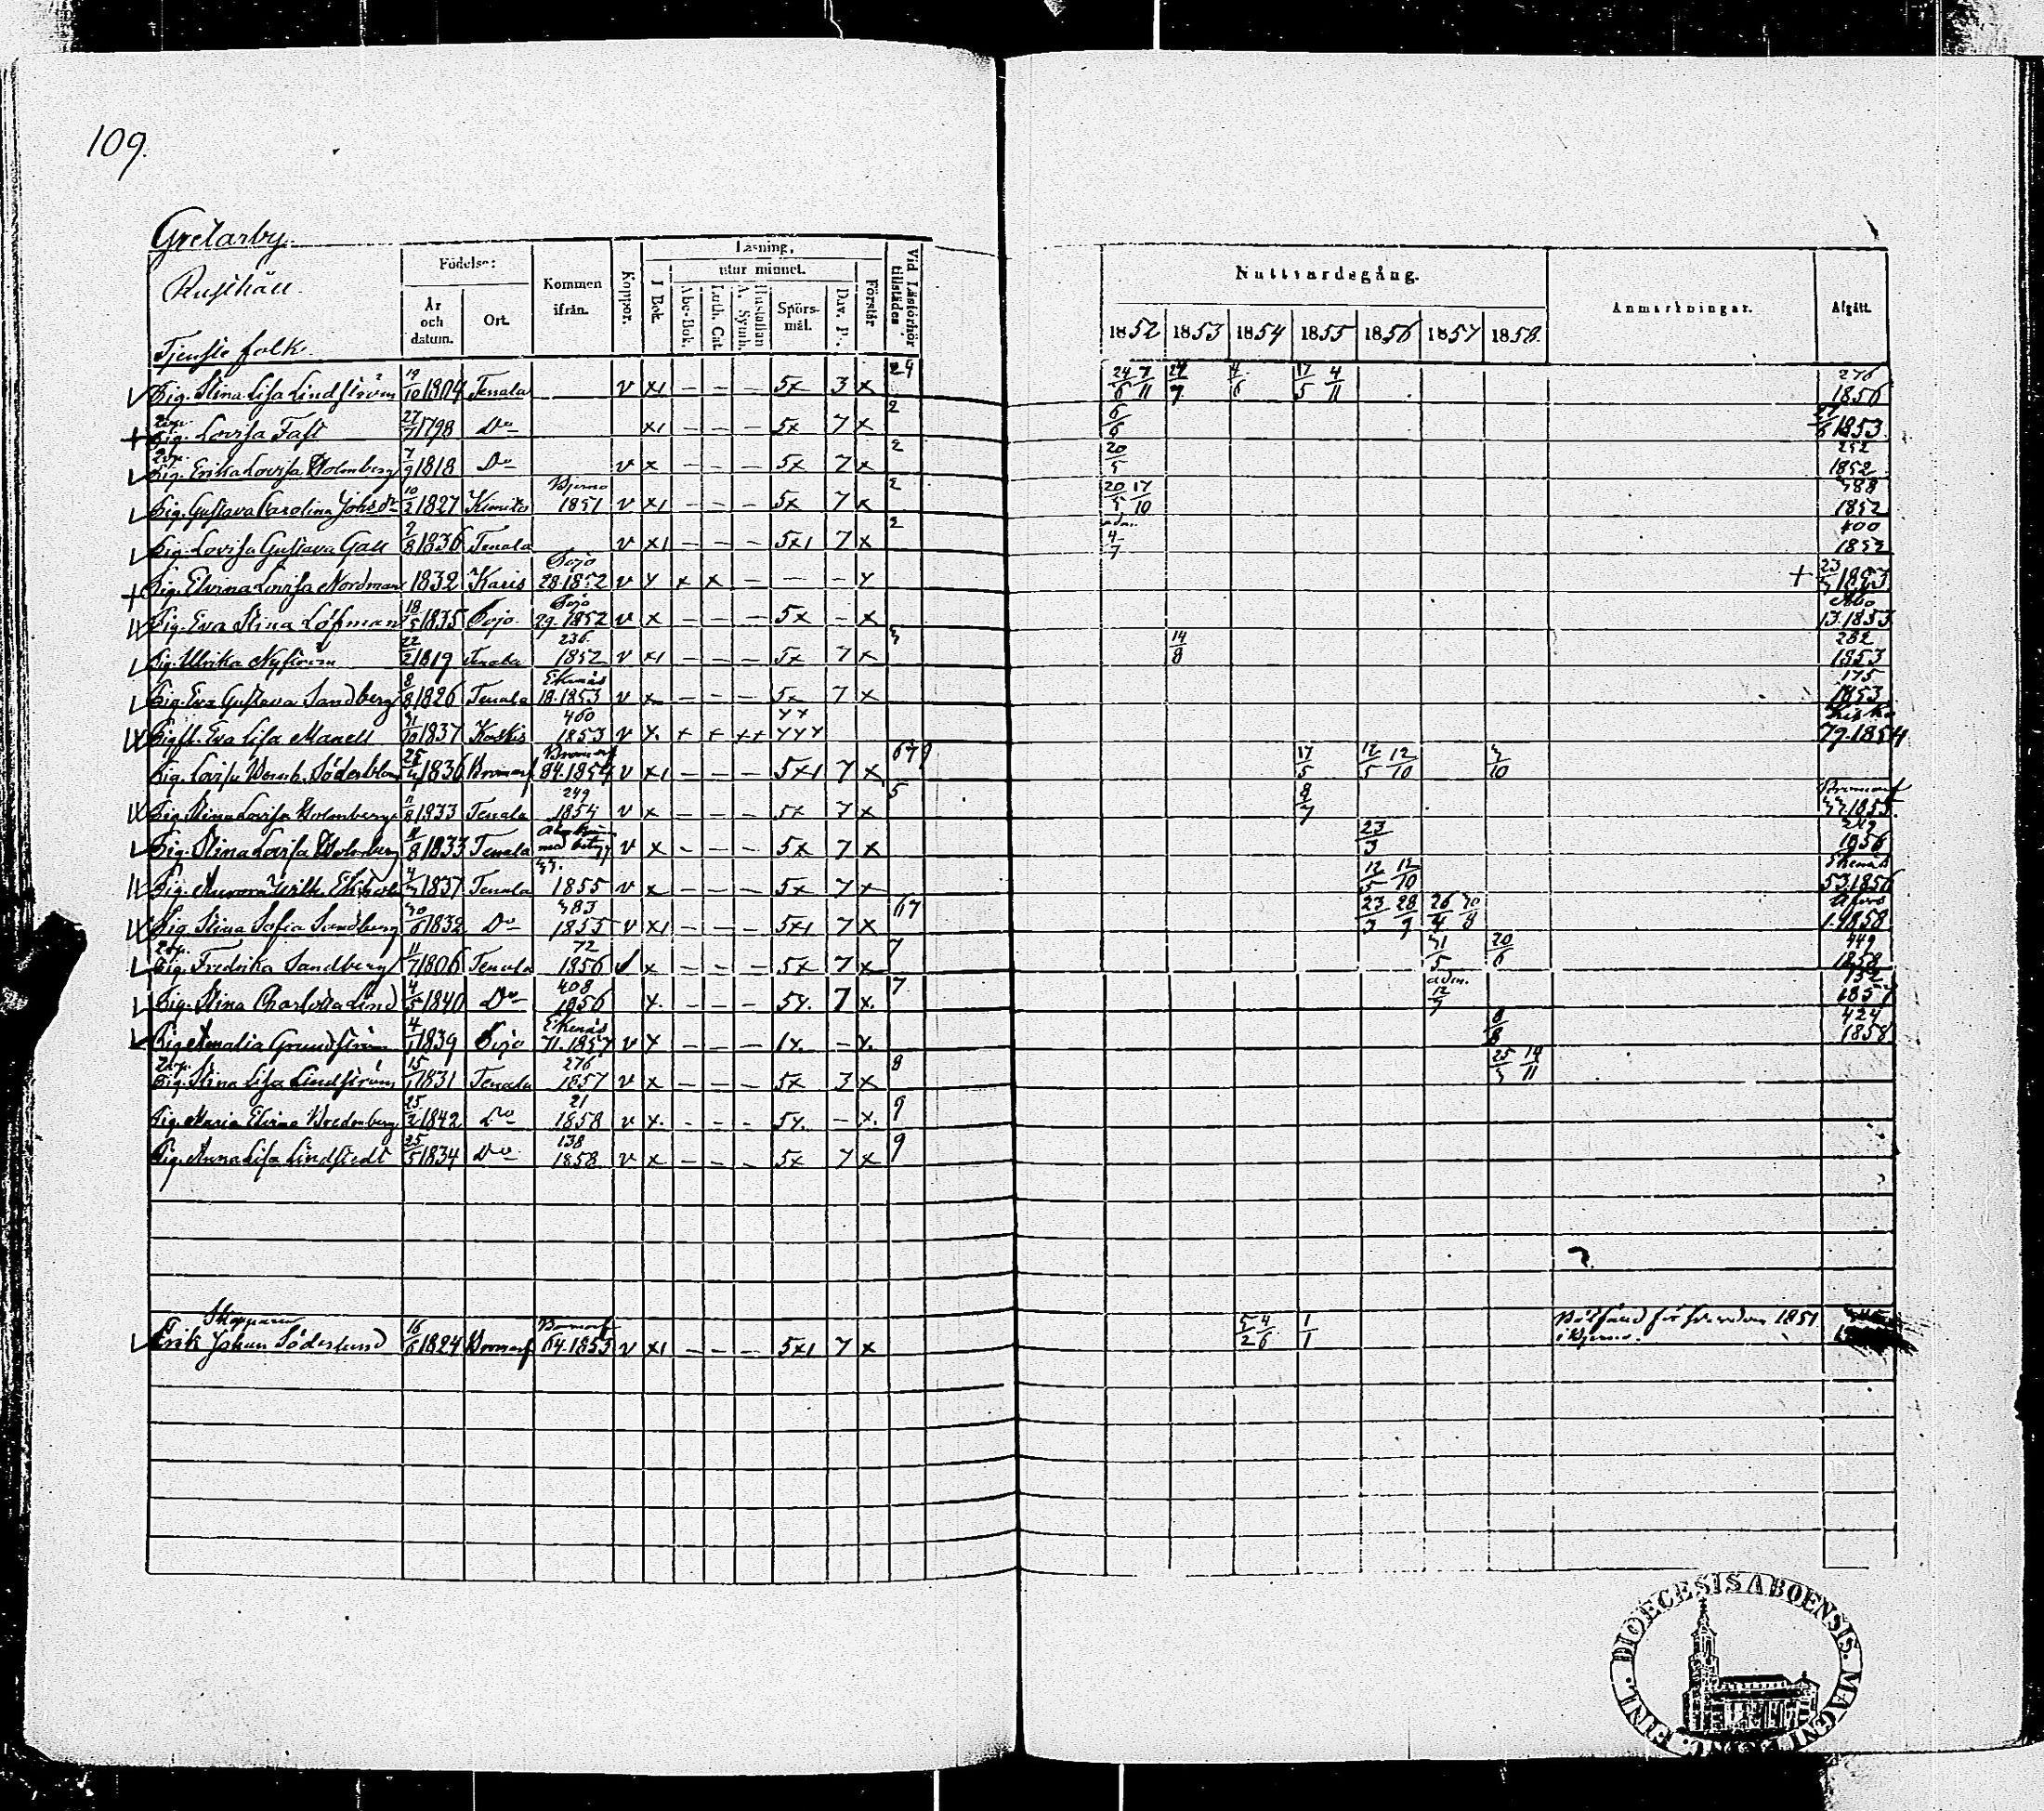 109.
Gretarby.
Rusthåll.
Tjenste folk.
Födelse:
År och datum.
Ort.
Kommen ifrån.
Koppor.
Läsning.
I Bok.
utur minnet.
Abc-Bok.
Luth. Cat.
Hustaflan A. Symb.
Spörsmål.
Dav. P.
Förstår
Vid Läsförhör tillstädes
Nattvardsgång.
1852 1853 1854 1855 1856 1857 1858.
Anmärkningar.
Afgått.
Pig. Stina Lisa Lindström 19/10 1804 Tenala v x1 – – – 5x 3 x 29 24/6 7/11 4/6 17/5 4/11 276 1856
Pig. Lovisa Fast 27/7 1798 Do x1 – – – 5x 7 x 2 6/6 1853
Pig. Erika Lovisa Holmberg 7/9 1818 Do v x – – – 5x 7 x 2 20/5 252 1852
Pig. Gustava Carolina 10/2 1827 Kimito Bjerno 1851 v x1 – – – 5x 7 x 2 20/5 17/10 388 1852
Pig. Lovisa Gustava Gall 7/8 1836 Tenala v x1 – – – 5x1 7 x 2 adm. 4/7 400 1852
Pig. Elvina Lovisa Nordman 1832 Karis Pojo 28.1852 v x x x – – – x + 23 1853
Pig. Eva Stina Löfman 18/5 1835 Pojo Pojo 29.1852 v x – – – 5x – x Åbo 13.1853
Pig. Ulrika Nyström 22/2 1819 Tenala 236 1852 v x1 – – – 5x 7 x 3 14/8 282 1853
Pig. Eva Gustava Sandberg 8/8 1826 Tenala Ekenäs 18.1853 v x – – – 5x 7 x 175 1853
Eva Lisa Manell 1837 460 1853 v x + + ++ Kisko 79.1854
Pig. Lovisa Söderblom 25 1836 Bromarf Bromarf 84.1854 v x1 – – – 5x1 7 x 679 17/5 12/5 12/10 3/10
Pig. Stina Lovisa Holmberg 11/8 1833 Tenala 249 1854 v x – – – 5x 7 x 5 8/7 Bromarf 33.1855.
Pig. Stina Lovisa Holmberg 11/8 1833 Tenala v x – – – 5x 7 x 23/3 249 1856
Pig. Aurora Wilh. 1837 Tenala 1855 v x – – – 5x 7 x 12/5 12/10 Ekenäs 53.1856
Pig. Stina Sofia Sandberg 1832 Do 383 1855 v x1 – – – 5x1 7 x 67 23/3 28/9 26/4 1.1858
Pig. Fredrika Sandberg 11/7 1806 Tenala 72 1856 x – – – 5x 7 x 7 31/5 20/6 449 1858
Pig. Stina Charlotta Lind 4/5 1840 Do 408 1856 x. – – – 5x. 7 x. 7 adm. 12/7 1857
Pig. Amalia Grundström 4/1 1839 Pojo Ekenäs 71.1857 v x – – – 1x. – x. 8/8 424 1858
Pig. Stina Lisa Lindström 15/1 1831 Tenala 276 1857 v x – – – 5x 3 x 8 25/3 14/11
Pig. Maria Elvina Bredenberg 25/2 1842 Do 21 1858 v x. – – – 5x. – x. 9
Pig. Anna Lisa Lindstedt 25/5 1834 Do 138 1858 v x – – – 5x 7 x 9
Skepparen
Erik Johan Söderlund 16/6 1824 Bromarf Bromarf 64.1853 v x1 – – – 5x1 7 x 5/2 4/6 1/1 1851
i Bjerno.
DIOECESIS ABOENSIS. MAGNI PRINC. FINL.